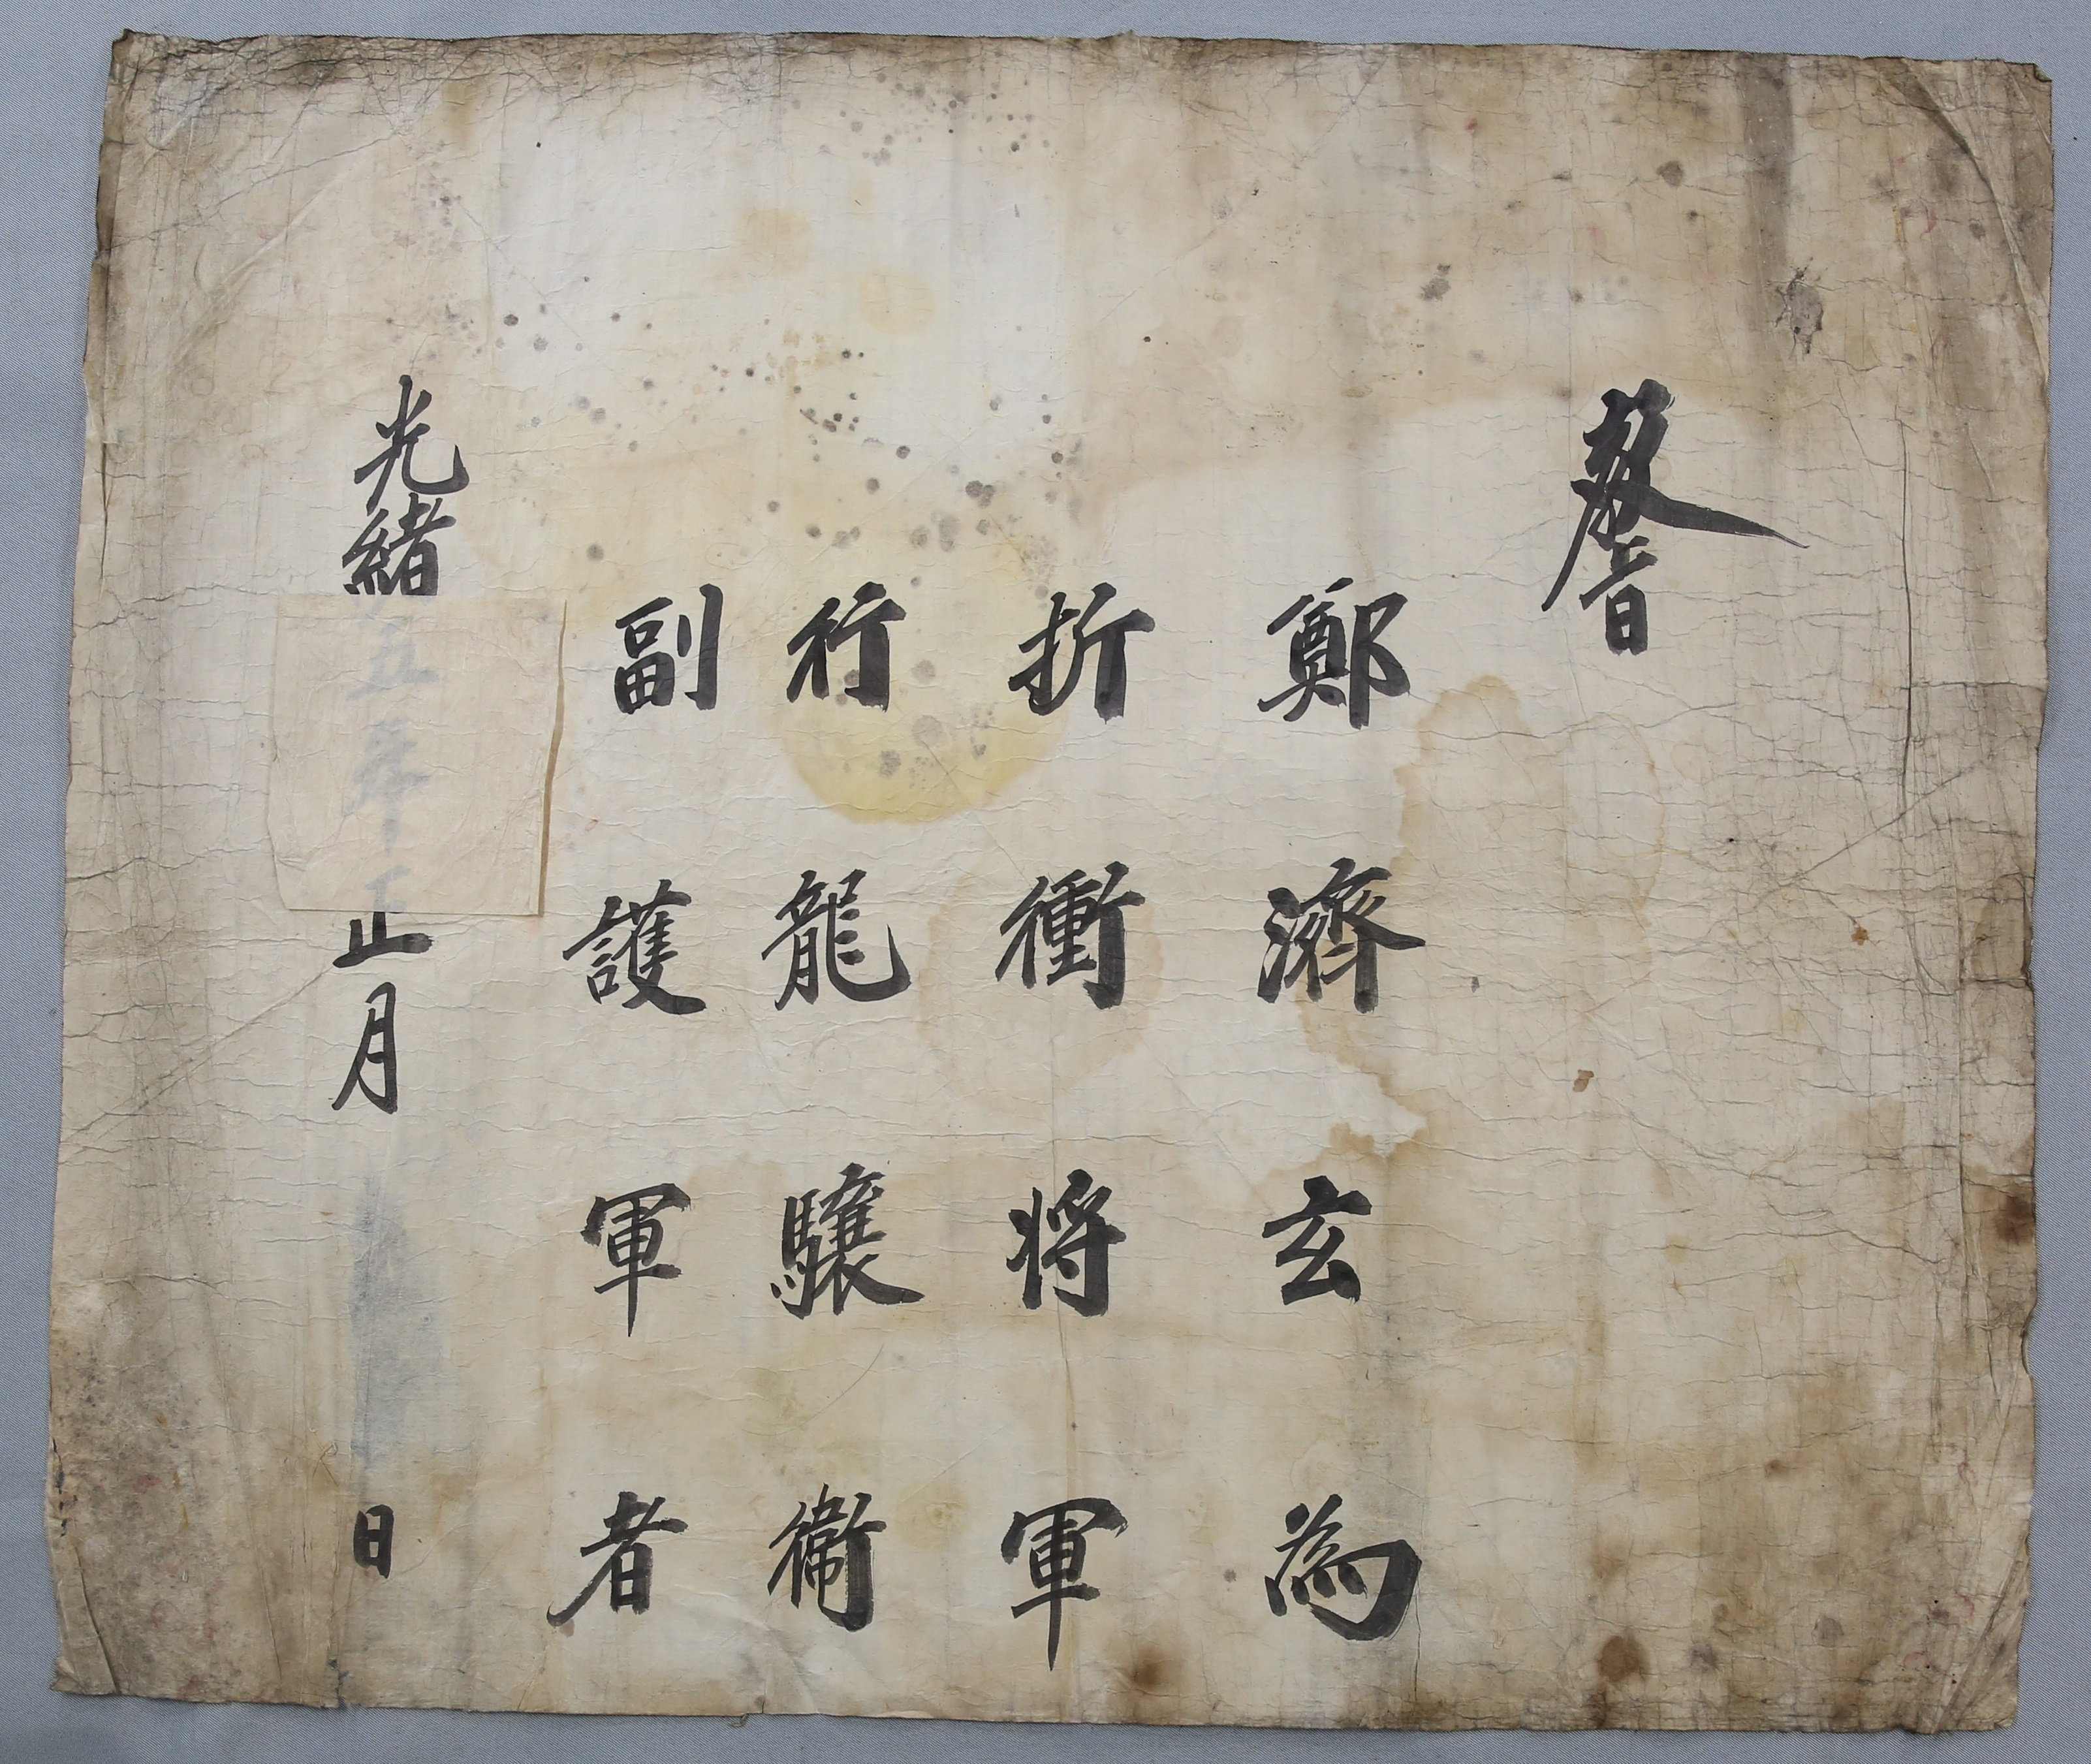 敎旨
鄭濟玄為
折衝将軍
行龍驤衛
副護軍者
光緒五年正月 日